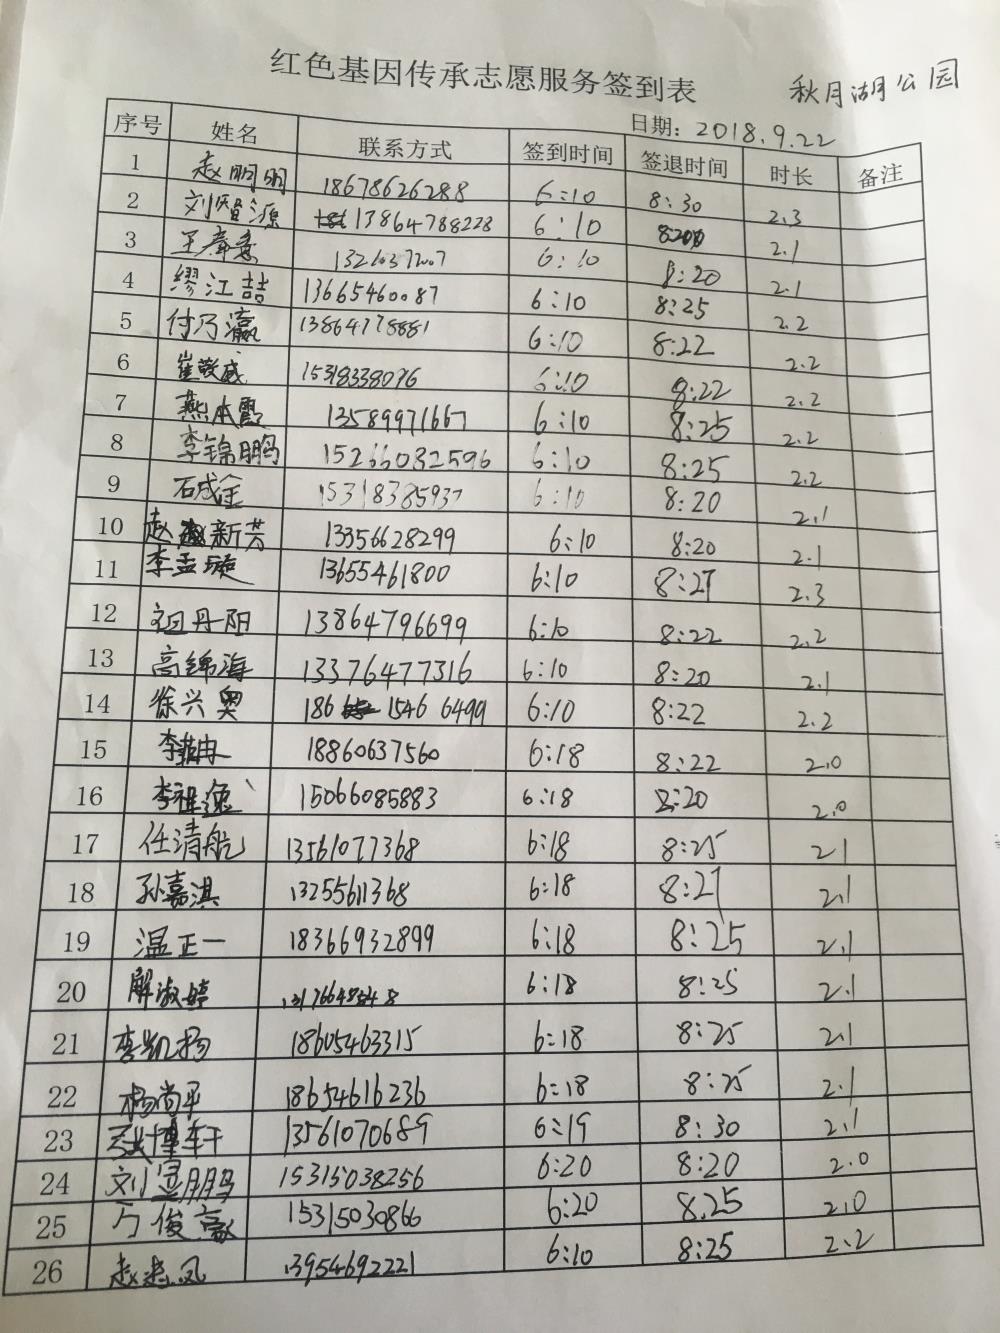 红色基因传承志愿服务签到表
秋月湖公园
日期：2018.9.22
序号 姓名 联系方式 签到时间 签退时间 时长 备注
1 赵明明 18678626288 6:10 8:30 2.3
2 刘 源 13864788228 6:10 8:20 2.1
3 王 6:10 8:20 2.1
4 缪江喆 13665460087 6:10 8:25 2.2
5 付乃瀛 13864778881 6:10 8:22 2.2
6 崔敬威 15318338096 6:10 8:22 2.2
7 燕本霞 13589971667 6:10 8:25 2.2
8 李锦鹏 15266032596 6:10 8:25 2.2
9 15318385937 6:10 8:20 2.1
10 赵新芳 13356628299 6:10 8:20 2.1
11 李孟璇 13655461800 6:10 8:27 2.3
12 祖丹阳 13864796699 6:10 8:22 2.2
13 高绵海 13376477316 6:10 8:20 2.1
14 徐兴奥 186 1546 6499 6:10 8:22 2.2
15 李 18860637560 6:18 8:22 2.0
16 李祖逸 15066085883 6:18 8:20 2.0
17 任清航 13561077368 6:18 8:25 2.1
18 孙嘉淇 13255611368 6:18 8:27 2.1
19 温正一 18366932899 6:18 8:25 2.1
20 解淑婷 6:18 8:25 2.1
21 李凯扬 18605463315 6:18 8:25 2.1
22 杨尚平 18654616236 6:18 8:25 2.1
23 博轩 13561070689 6:19 8:30 2.1
24 刘显鹏 15315038256 6:20 8:20 2.0
25 俊豪 15315030866 6:20 8.25 2.0
26 赵 凤 13954692221 6:10 8:25 2.2